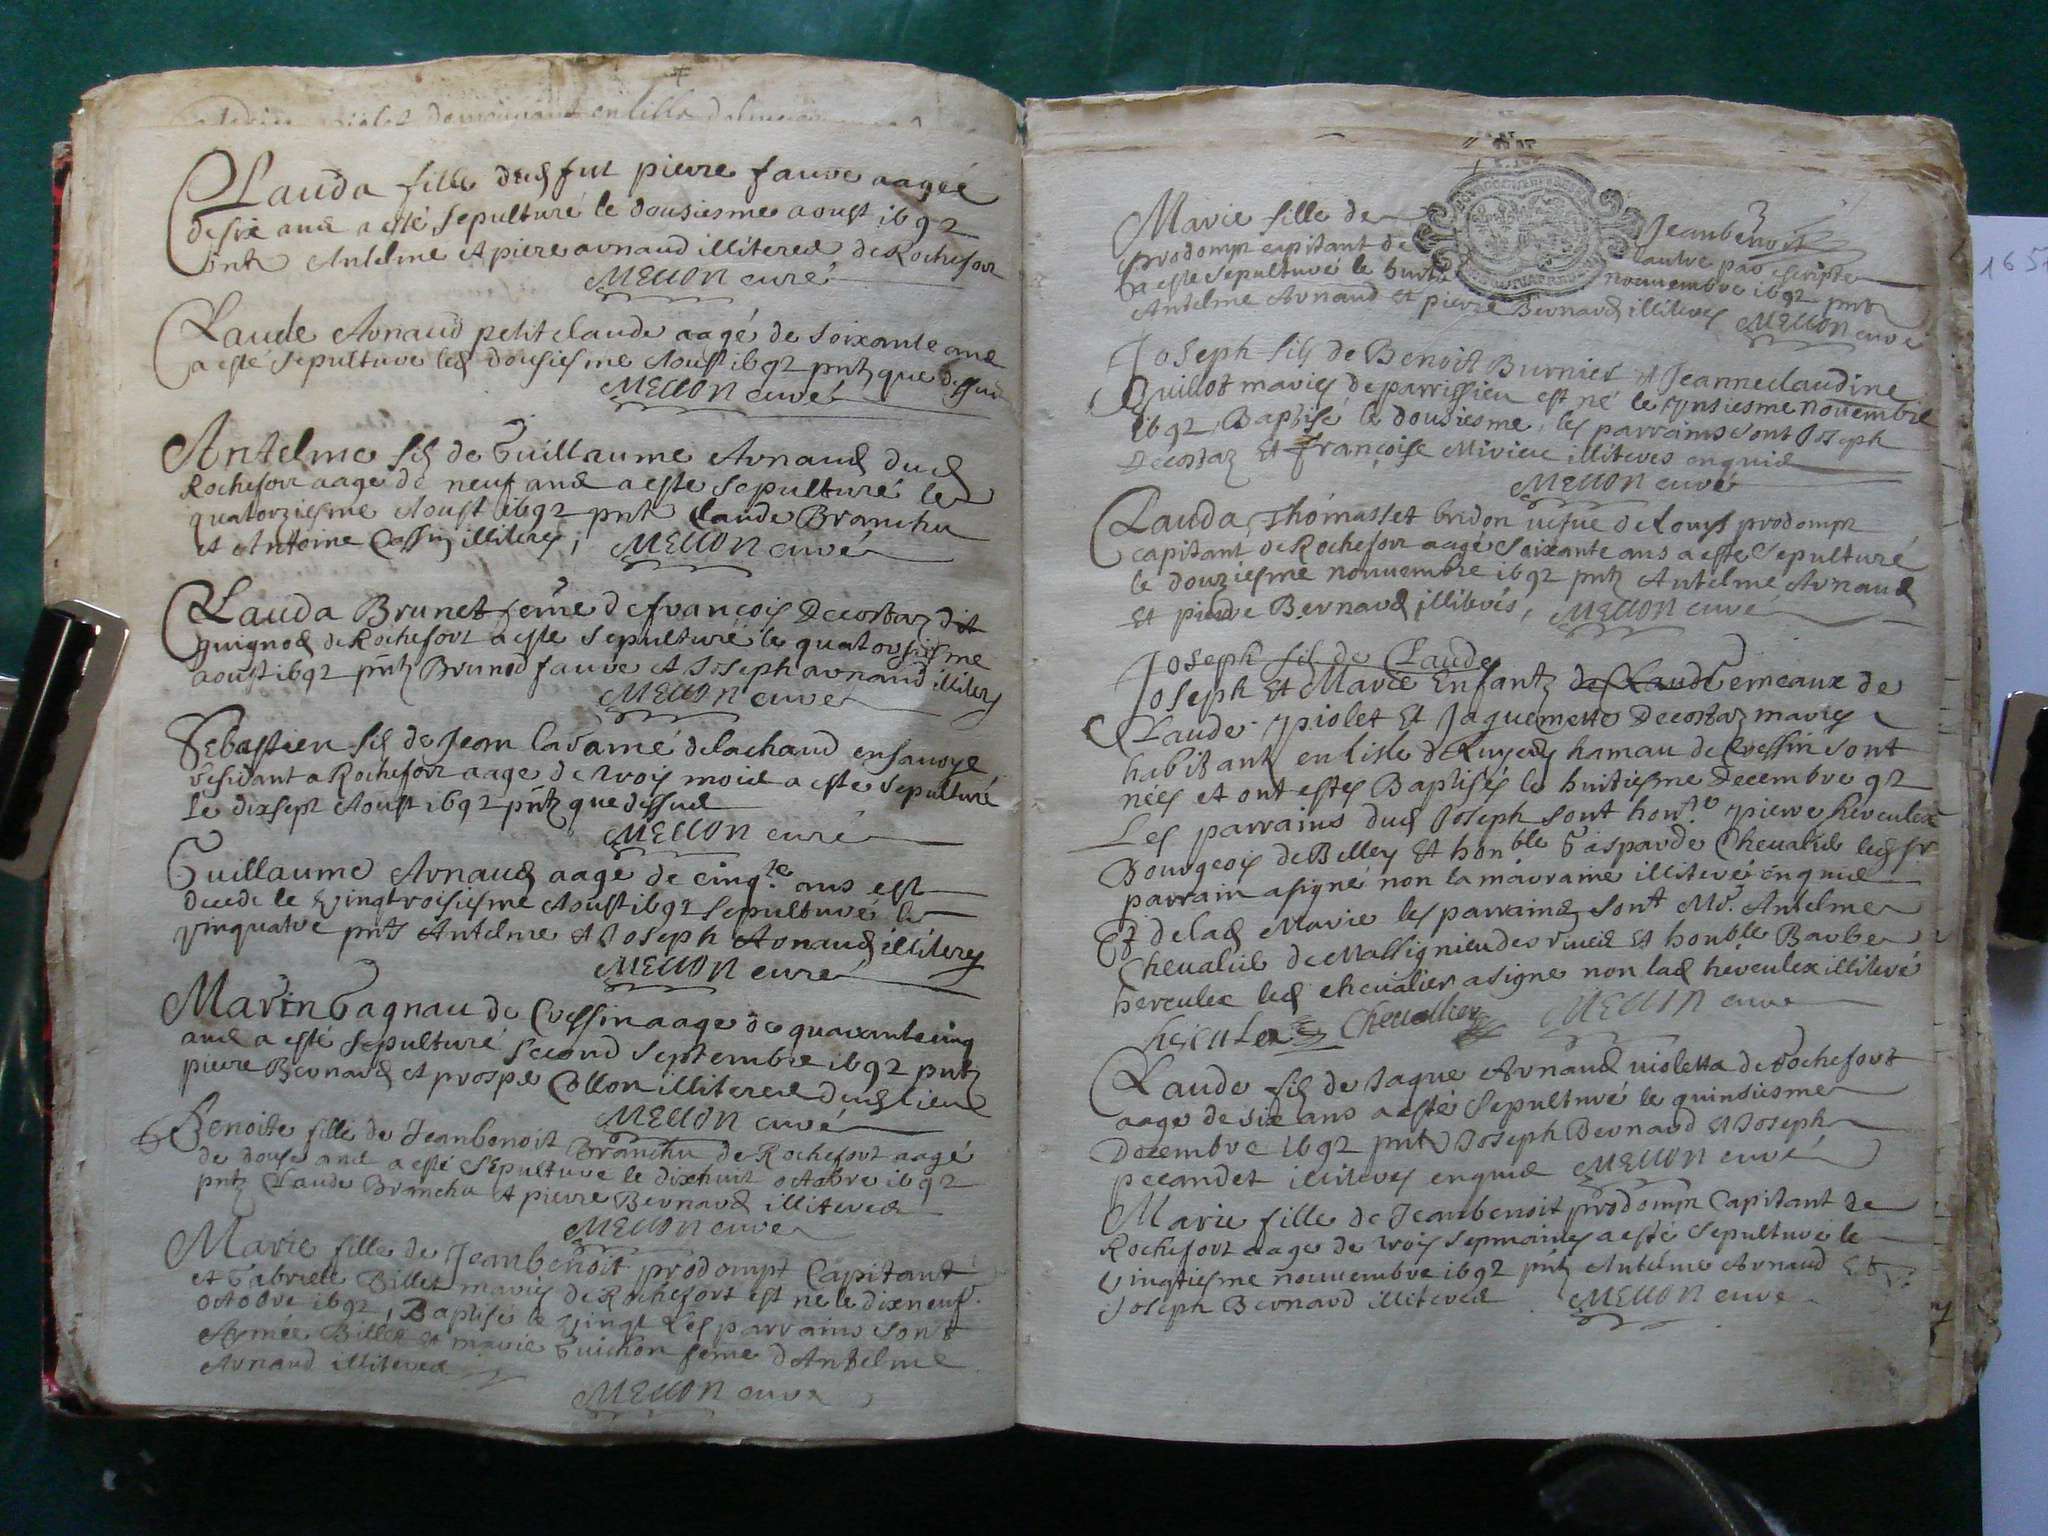 Clauda fille dud fut pierre faure aagée
de six ans a esté sepulturé le dousiesme aoust 1692
Antelme et piere arnaud illiteres de Rochefort
MELLON curé
Claude Arnaud petit claude aagé de soixante ans
a esté sepulturé led dousiesme Aoust 1692 pntz que dessus
MELLON curé
Antelme fils de Guillaume Arnaud dud
Rochefort aagé de neuf ans a esté sepulturé le
quatorziesme Aoust 1692 pnt Claude Branchu
et Antoine Cassin illiteres, MELLON curé
Clauda Brunet feme de françois Decostaz dit
guignod de Rochefort a esté sepulturé le quatorsiesme
aoust 1692 pntz Brunod faure et Joseph arnaud illiteres
MELLON curé
Sebastien fils de Jean de lachaud en sauoye
residant a Rochefort aagé de trois mois a esté sepulturé
le dixsept Aoust 1692 pntz que dessus
MELLON curé
Guillaume Arnaud aagé de cinq.te ans est
decedé le vingtroisiesme Aoust 1692 sepulturé le
vinquatre pnts Antelme et Joseph Arnaud illiteres
MELLON curé
Marin Gagnau de Cressin aagé de quarantecinq
ans a esté sepulturé second septembre 1692 pntz
pierre Bernard et prosper Collon illiteres dud lieu
MELLON curé
Benoite fille de Jeanbenoit Branchu de Rochefort aagé
de douse ans a esté sepulturé le dixhuit octobre 1692
pntz Claude Branchu et pierre Bernard illiteres
MELLON curé
Marie fille de Jeanbenoit prodompt Capitant
et Gabrielle Billet mariés de Rochefort est né le dixneuf
octobre 1692, Baptisé le vingt Les parrains sont
Aymée Billet et marie Guichon feme d'Antelme
Arnaud illiteres
MELLON curé
Marie fille de Jeanbenoit
prodompt capitant de lautre par escripte
a esté sepulturé le huit nouuembre 1692 pntz
Antelme Arnaud et pierre Bernard illiteres MELLON curé
Joseph fils de Benoit Burnier et Jeanneclaudine
Quillot mariés de parrissieu est né le novembre
1692, Baptisé le dousiesme, les parrains sont Joseph
Decostaz et françoise Miviere illiteres enquis
MELLON curé
Clauda Thomasset bridon vefue de Louys prodompt
capitant de Rochefort aagé soixante ans a esté sepulturé
le douziesme nouuembre 1692 pntz Antelme Arnaud
Et pierre Bernard illiterés, MELLON curé
Joseph fils de Claude
Joseph et Marie Enfantz de Claude emeaux de
Claude piolet et Jaquemette Decostaz mariés
habitant en lisle de hamau de Cressin sont
nées et ont estes Baptisés le huitiesme Decembre 92
Les parrains dud Joseph sont hon.ble pierre herculex
Bourgeois de Belley et honble Gasparde Cheualier led sr
parrain a signé non la marraine illiteré enquis
Et de lad Marie les parrains sont Mr. Antelme
Cheualier de Massignieu des rives et honble Barbe
herculex led cheualier a signé non lad herculex illiteré
herculex Cheuallier MELLON curé
Claude fils de Jaque Arnaud violetta de rochefort
aagé de six ans a esté sepulturé le quinsiesme
Decembre 1692 pntz Joseph Bernard et Joseph
pecandet illiteres enquis MELLON curé
Marie fille de Jeanbenoit prodompt Capitant de
Rochefort aagé de trois sepmaines a esté sepulturé le
vingtiesme nouuembre 1692 pntz Antelme Arnaud Et
Joseph Bernard illiteres MELLON curé